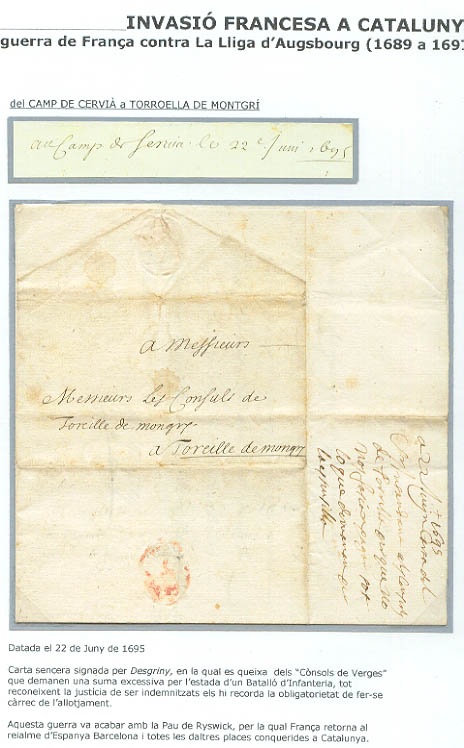 INVASIÓ FRANCESA A CATALUNY
guerra de França contra La Lliga d'Augsbourg (1689 a 169
del CAMP DE CERVIÀ a TORROELLA DE MONTGRÍ
au Camp de Servia le 22e Juin 1695
a Messieurs
Messieurs Les Consuls de
Toreille de mongry
a Toreille de mongry
Datada el 22 de Juny de 1695
Carta sencera signada per Desgriny, en la qual es queixa dels "Cònsols de Verges"
que demanen una suma excessiva per l'estada d'un Batalló d'Infanteria, tot
reconeixent la justícia de ser indemnitzats els hi recorda la obligatorietat de fer-se
càrrec de l'allotjament.
Aquesta guerra va acabar amb la Pau de Ryswick, per la qual França retorna al
reialme d'Espanya Barcelona i totes les daltres places conquerides a Catalunya.